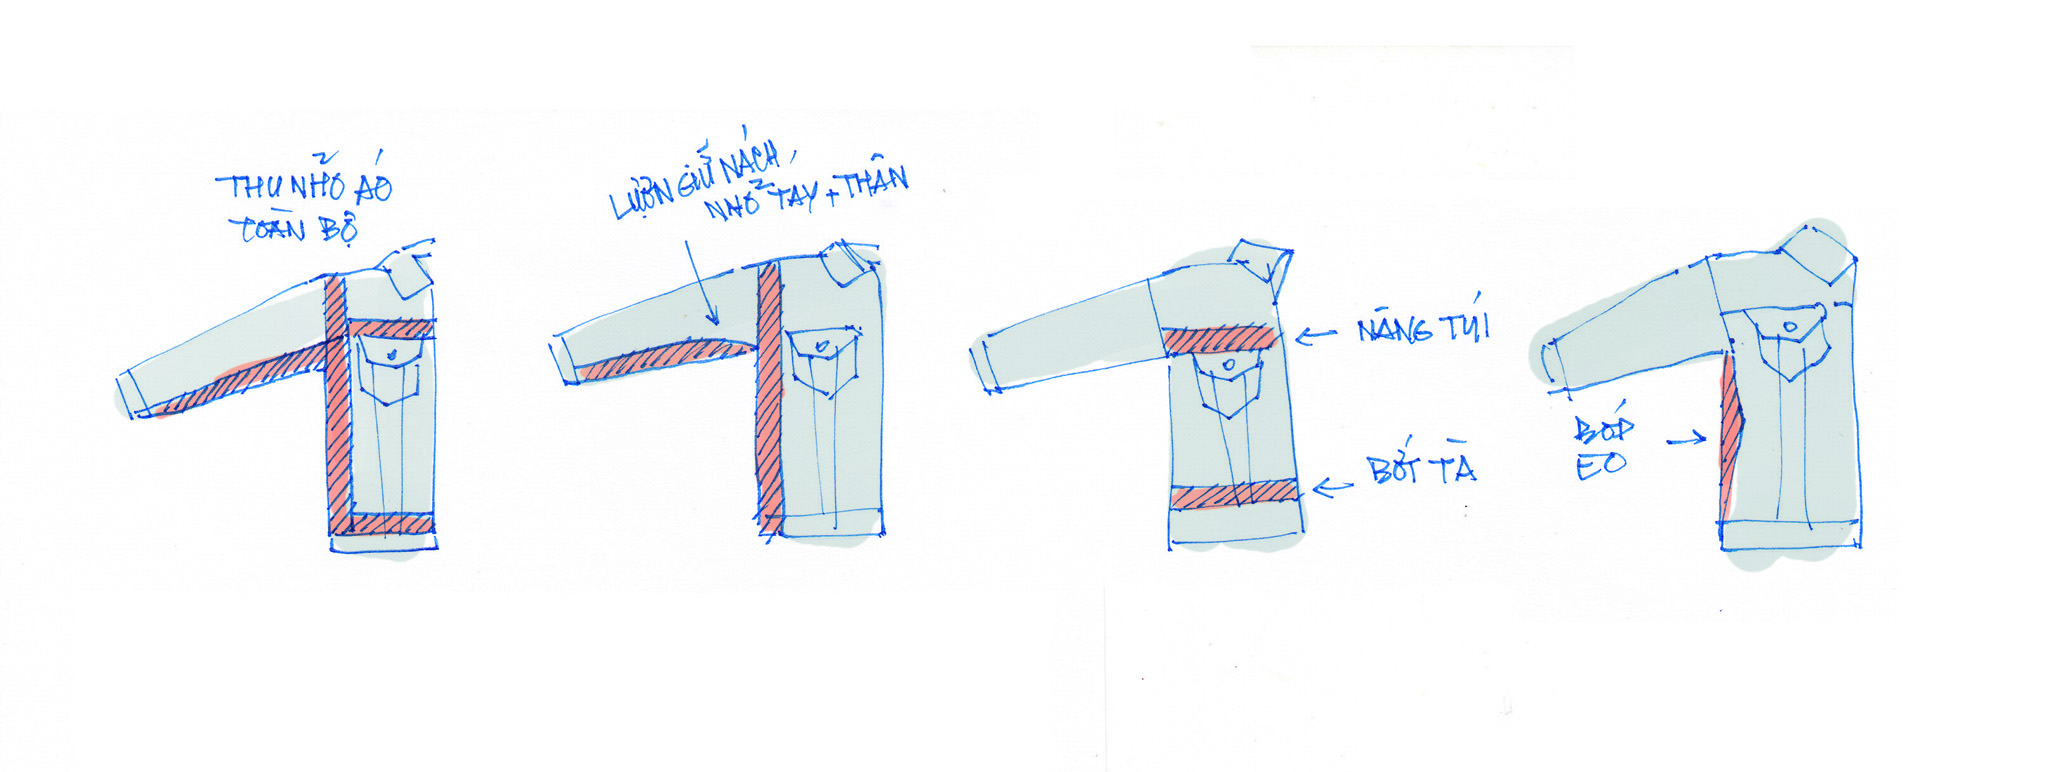 THU NHỎ ÁO
TOÀN BỘ
LƯỢN GIỮ NÁCH,
NHỎ TAY + THÂN
NÂNG TÚI
BỚT TÀ
BÓP
EO